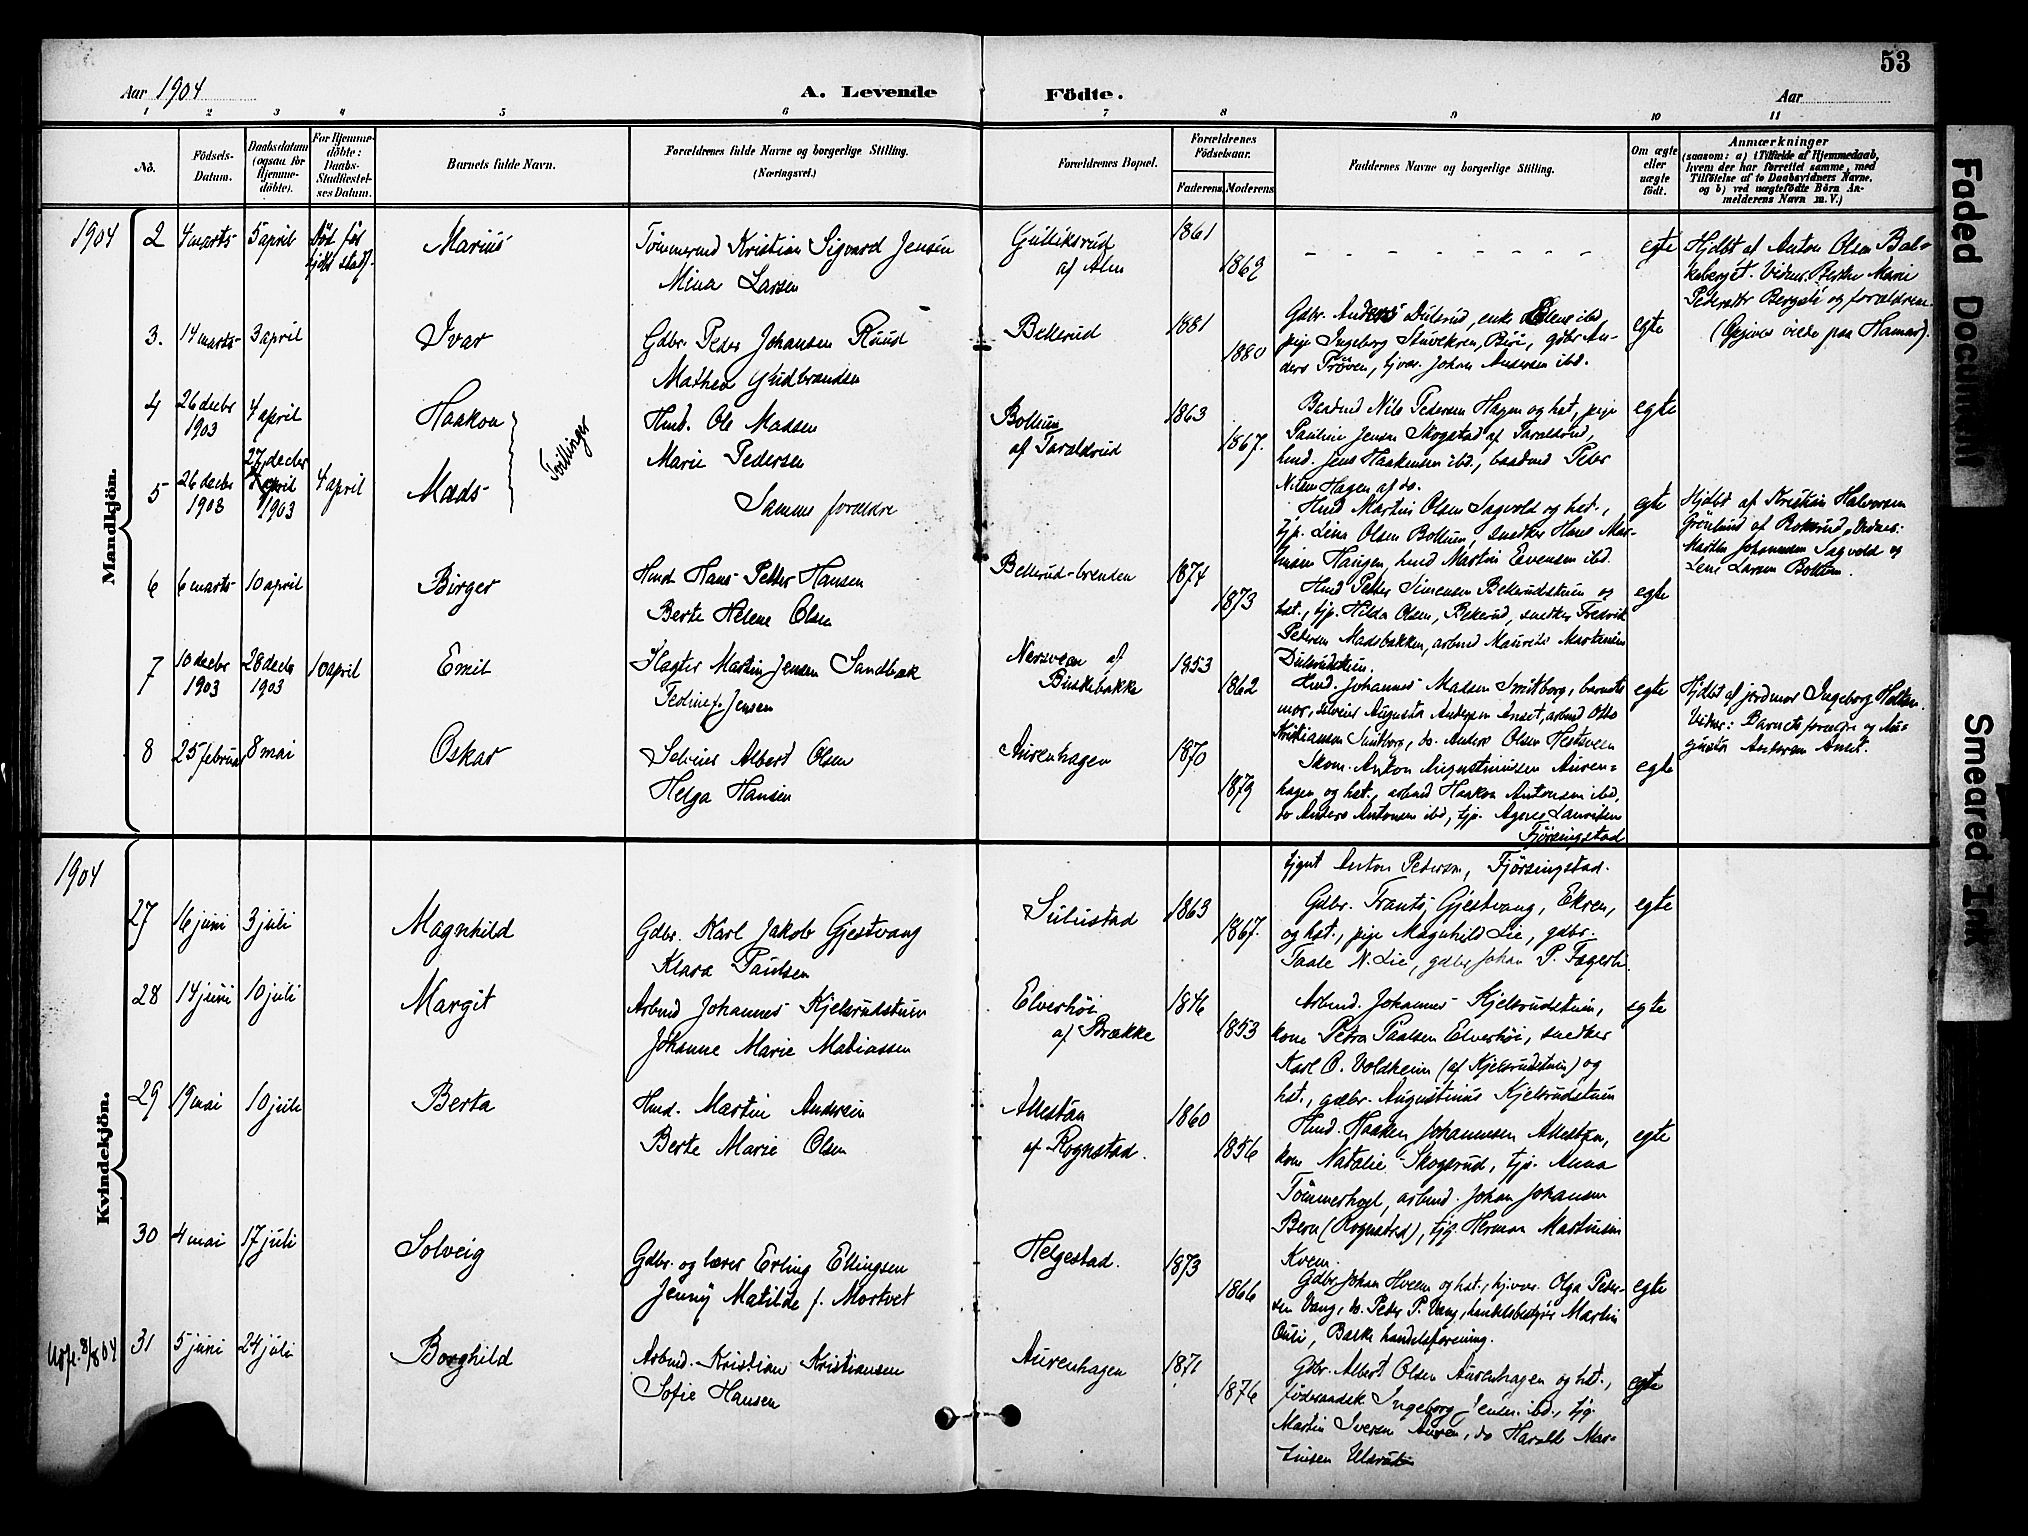 53
Aar 1904
A. Levende Födte.
Aar
1 2 3 4 5 6 7 8 9 10 11
No.
Födsels-Datum.
Daabsdatum (ogsaa for Hjemme-döbte).
For Hjemme-döbte: Daabs-Stadfæstel-ses Datum.
Barnets fulde Navn.
Forældrenes fulde Navne og borgerlige Stilling. (Næringsvei.)
Forældrenes Bopæl.
Forældrenes Födselsaar.
Faderens Moderens
Faddernes Navne og borgerlige Stilling.
Om ægte eller uægte födt.
Anmærkninger
(saasom: a) i Tilfælde af Hjemmedaab, hvem der har forrettet samme, med Tilföielse af to Daabsvidners Navne, og b) ved uægtefödte Börn An-melderens Navn m. V.)
Mandkjön.
1904 2 4 marts 5 april Död før Marius
Tømmermd Kristian Sigvard Jensen
Mina Larsen
Gulliksrud
af Alm
1861
egte
Hjdbt af Anton Olsen
og forældrene.
3. 14 marts 3 april Ivar
Gdbr. Peder Johansen Ruud
Mathea Gudbrandsen
Bellerud
1881
1880
Gdbr. Anders Dulerud, enke
pige Ingeborg Biri, gdbr. An-
ders Prøven, Johan Andersen ibd.
egte
(Opgives viede paa Hamar).
4 26 decbr 1903 4 april Haakon
Tvillinger
Hmd. Ole Madsen
Marie Pedersen
Bollum
af Taraldrud
1863
1867.
Nils Pedersen Hagen og hst., pige
Pauline Jensen Skogstad af Taraldrud,
hmd. Jens Haakensen ibd., Peder
Nilsen Hagen af do.
egte
5 26 decbr 1903 27 decbr 1903 4 april Mads
Samme forældre
Hmd Martin Olsen Sagvold og hst.,
tjp. Lina Olsen Bollum, snedker Hans Mar-
Haugen, hmd Martin Evensen ibd.
egte
Hjdbt af Kristian Halvorsen
Grønlund af
Johannesen Sagvold og
Lene Larsen Bollum.
6 6 marts 10 april Birger
Hmd Hans Petter Hansen
Berte Helene Olsen
Bellerud-brenden
1874
1873
Hmd Petter Simensen Bellerudstuen og
hst., tjp. Hilda Olsen, snedker Fredrik
Pedersen Madsbakken, arbmd Maurits
egte
7 10 decbr 1903 28 decbr 1903 10 april Emil
Martin Jensen Sandbak
f. Jensen
Nersveen af
Buskebakke
1853
1862
Hmd. Johannes Madsen barnets
mor, Augusta Andersen Anset, arbmd Otto
Kristiansen do. Anders Olsen Hestsveen
egte
Hjdbt af jordmor Ingeborg
Vidner: Barnets forældre og Au-
gusta Andersen Anset.
8 25 februar 8 mai Oskar
Selveier Albert Olsen
Helga Hansen
Aurenhagen
1870
1879
Skom. Anton Augustinussen Auren-
hagen og hst., arbmd Haakon Antonsen ibd,
do Anders Antonsen ibd, tjp. Agnes Lauritsen
Fjørsingstad
egte
Kvindekjön.
1904
tjgut Anton Pedersen, Fjørsingstad.
27 16 juni 3 juli Magnhild
Gdbr. Karl Jakob Gjestvang
Klara Paulsen
Sulustad
1863
1867.
Gdbr. Frants Gjestvang, Ekren,
og hst., pige Magnhild Lie, gdbr.
Taale N. Lie, gdbr Johan P. Fagerli.
egte
28 14 juni 10 juli Margit
Arbmd Johannes Kjelsrudstuen
Johanne Marie Matiassen
Elverhöi
af Brække
1846
1853
Arbmd. Johannes Kjelsrudstuen,
kone Petra Paalsen Elverhöi, snedker
Karl O. Voldheim (af Kjelsrudstuen) og
hst., gdbr. Augustinus Kjelsrudstuen
egte
29 19 mai 10 juli Berta
Hmd. Martin Andrein
Berte Marie Olsen
af Rognstad.
1860
1856
Hmd. Haaken Johannesen
kone Natalie Skogsrud, tjp. Anna
arbmd. Johan Johansen
Bern (Rognstad), tjg Herman Martinsen
Kveen.
egte
30 4 mai 17 juli Solveig
Gdbr. og lærer Erling Ellingsen
Jenny Matilde f. Mortvet
Helgestad.
1873
1866
Gdbr Johan Hveem og hst., Olga Peder-
sen Vang, do. Peder P. Vang, Martin
Balke handelsforening.
egte
31 5 juni 24 juli Borghild
Arbmd. Kristian Kristiansen
Sofie Hansen
Aurenhagen
1871
1876
Gdbr. Albert Olsen Aurenhagen og hst.,
Ingeborg Jensen ibd., tjg.
Martin Iversen Auren, do Harald Mar-
tinsen
egte
8/8 04
Faded Document
Smeared Ink